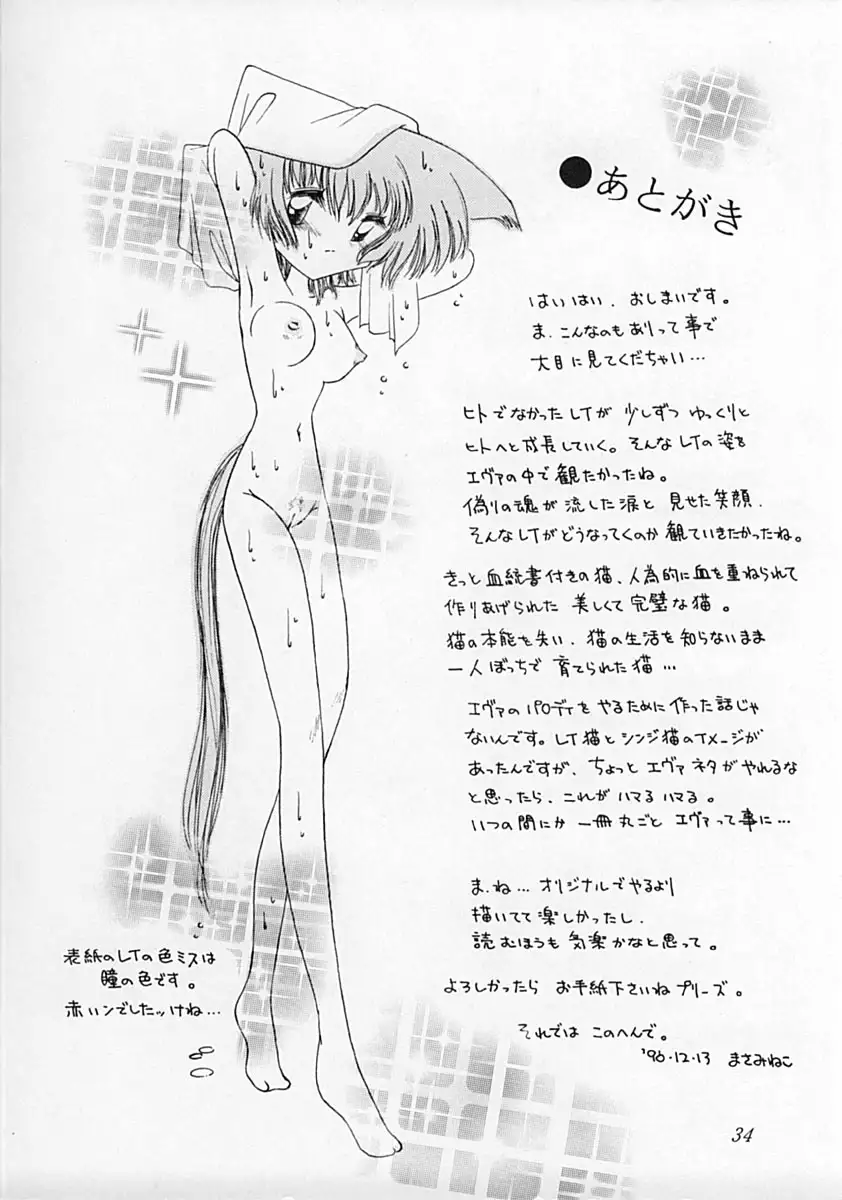 ●あとがき
はいはい、おしまいです。
ま、こんなのもありって事で
大目に見てくだちゃい…
ヒトでなかったレイが 少しずつ ゆっくりと
ヒトへと成長していく。そんなレイの姿を
エヴァの中で観たかったね。
偽りの魂が流した涙と 見せた笑顔、
そんなレイがどうなってくのか 観ていきたかったね。
きっと血統書付きの猫、人為的に血を重ねられて
作りあげられた 美しくて完璧な猫。
猫の本能を失い、猫の生活を知らないまま
一人ぼっちで 育てられた猫…
エヴァのパロディをやるために作った話じゃ
ないんです。レイ猫とシンジ猫のイメージが
あったんですが、ちょっとエヴァネタがやれるな
と思ったら、これがハマるハマる。
いつの間にか 一冊丸ごと エヴァって事に…
ま、ね…オリジナルでやるより
描いてて楽しかったし、
読むほうも 気楽かなと思って。
よろしかったら お手紙下さいね プリーズ。
それでは このへんで。
'96.12.13 まさみねこ
表紙のレイの色ミスは
瞳の色です。
赤いンでしたッけね…
34